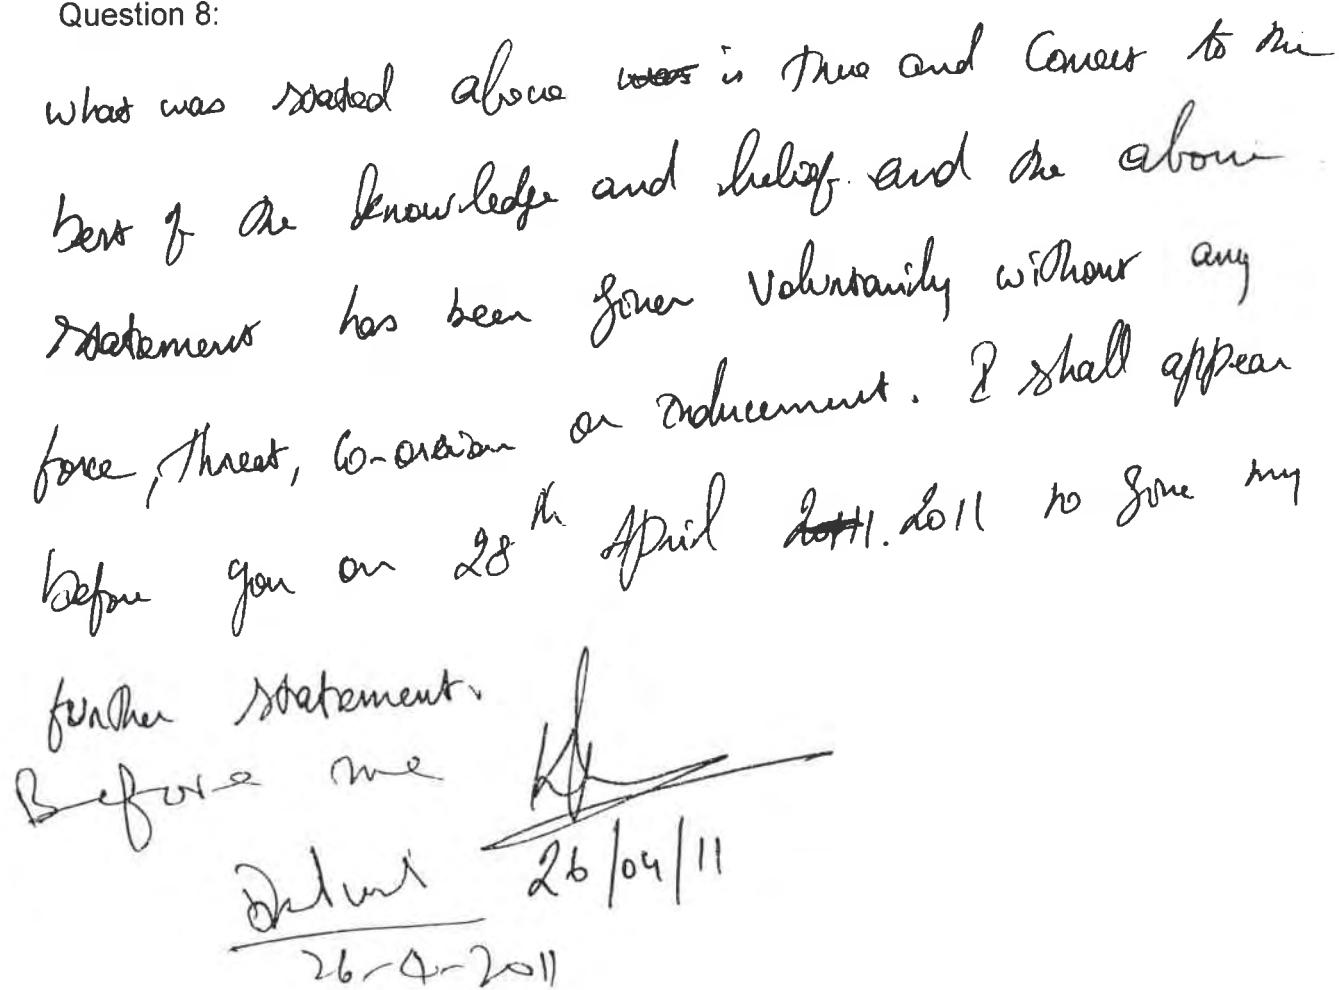 Question 8:
what was stated above was is true and correct to the
best of the knowledge and belief. and the above
statement has been given voluntarily without any
force, threat, co-orsion or inducement. I shall appear
before you on 28th April 2011. 2011 to give my
further statement.
Before me
26/04/11
26-4-2011